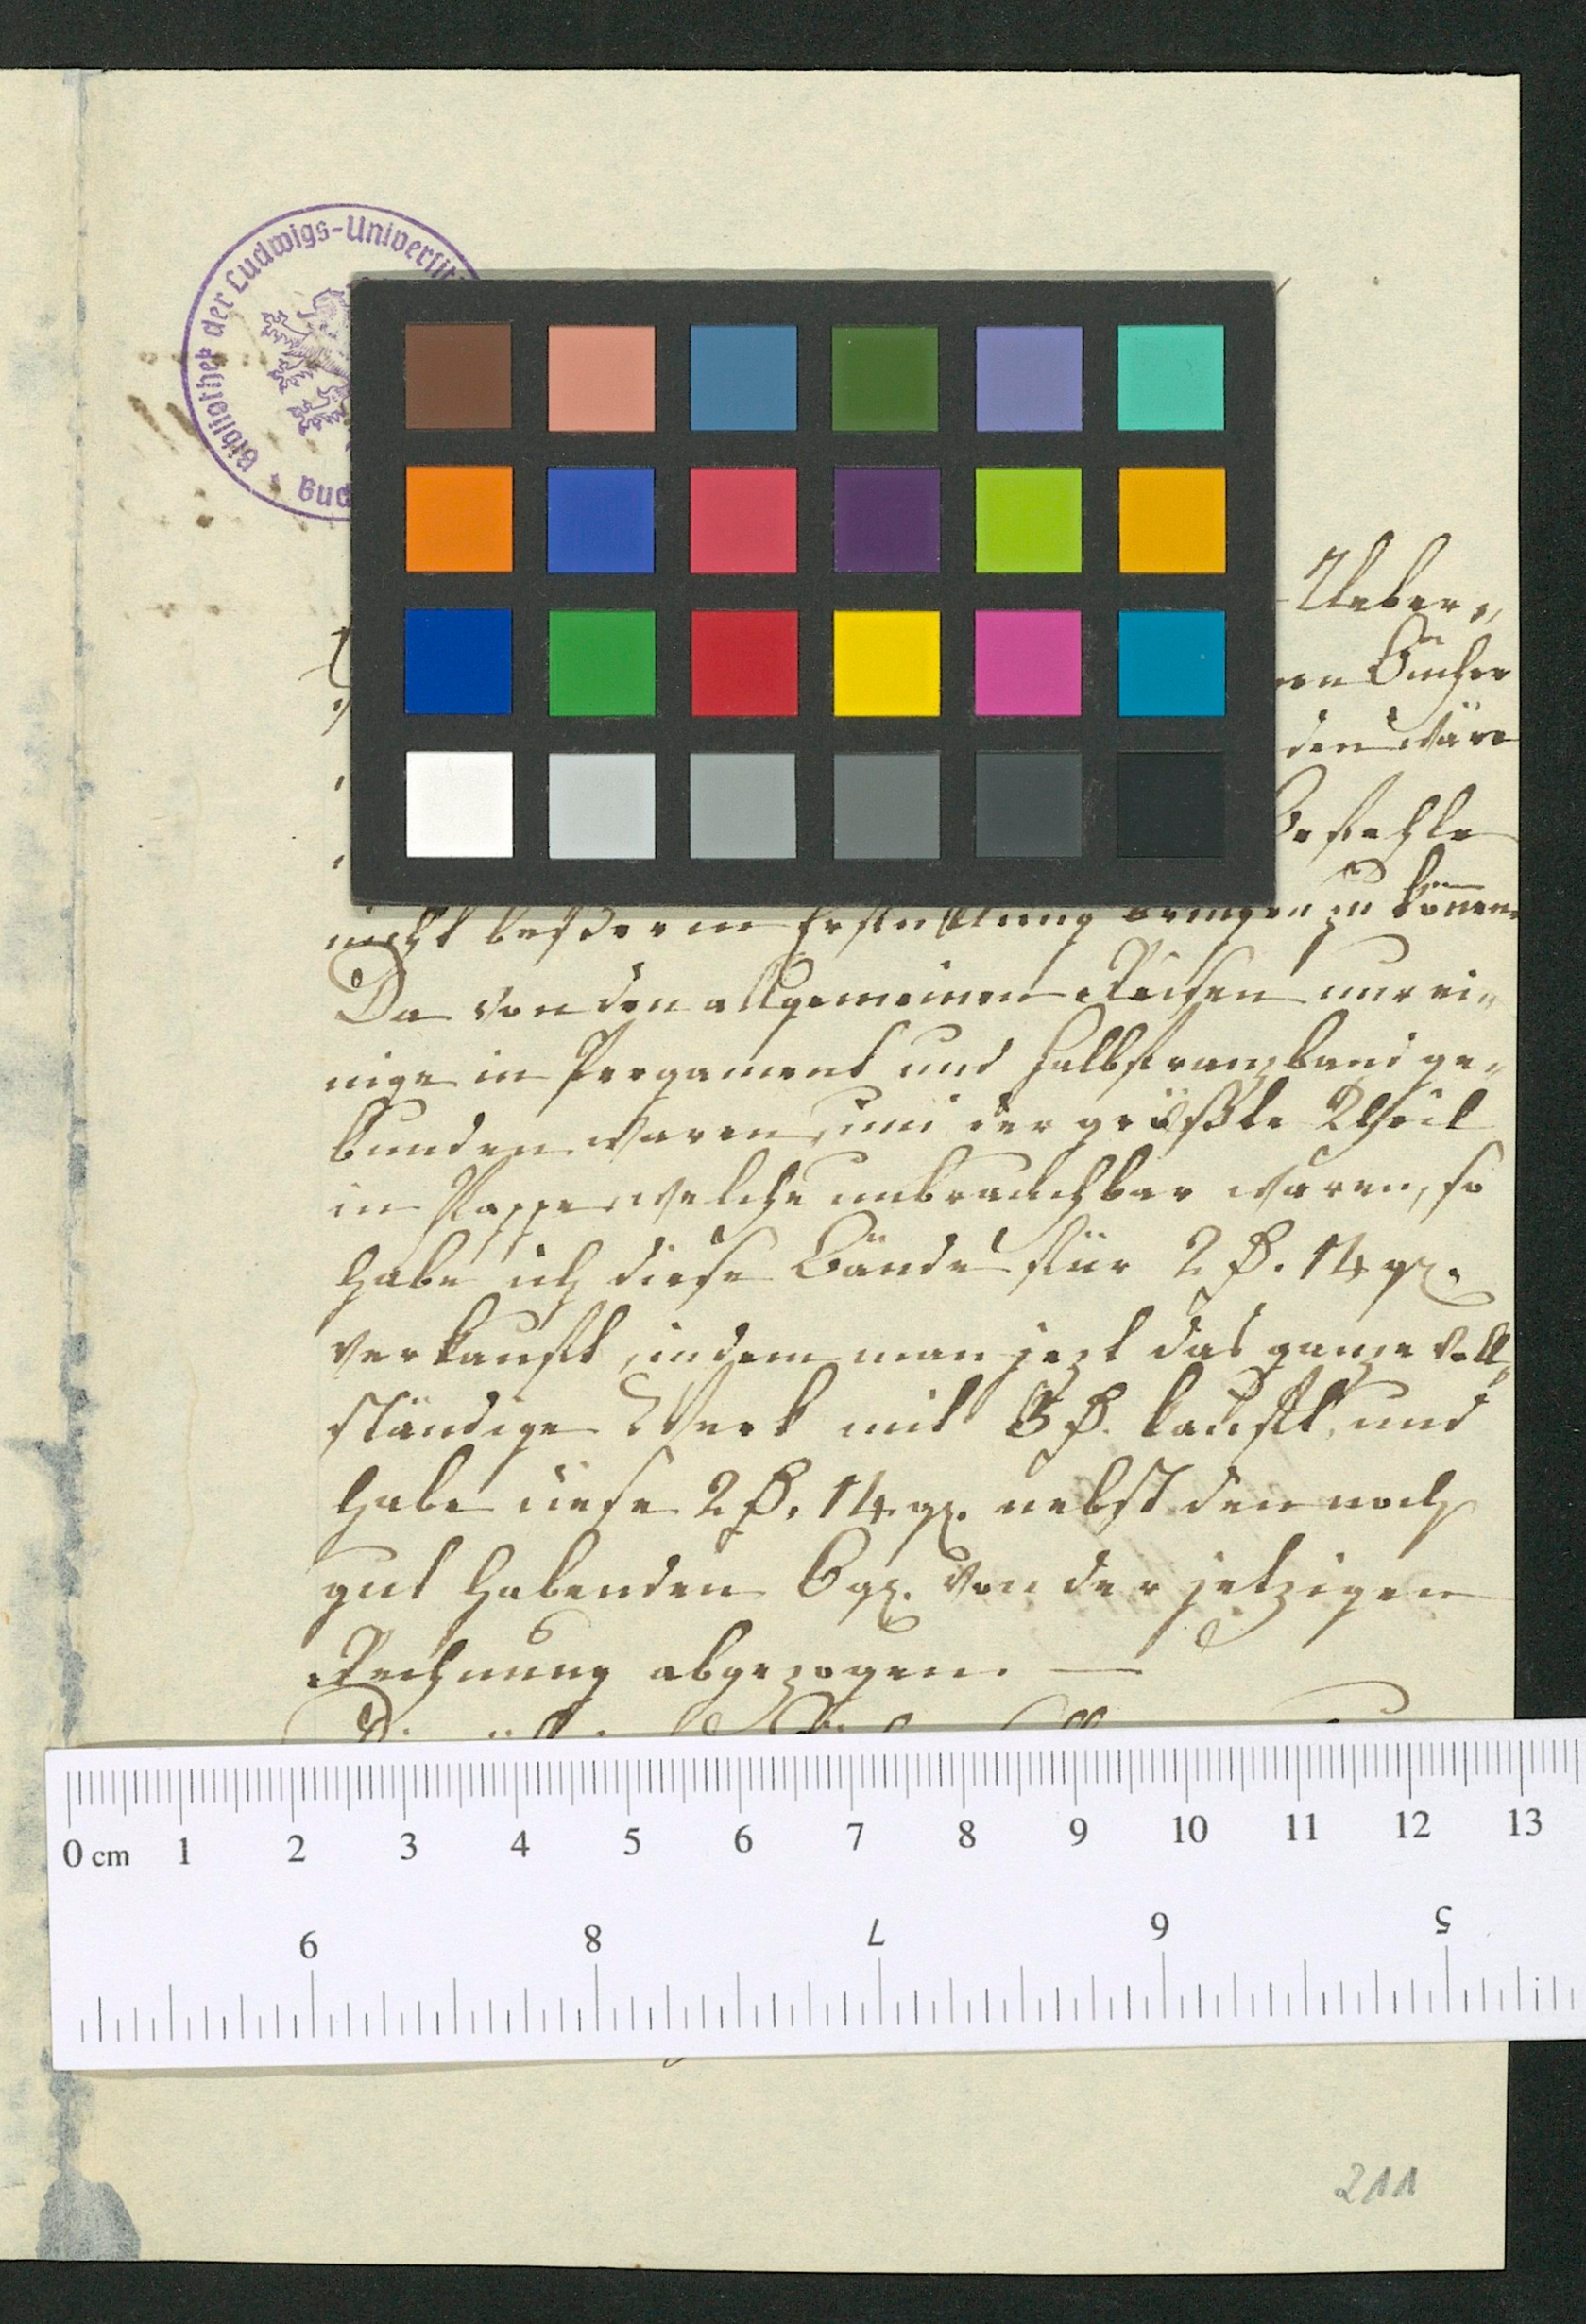 Bibliothek der Ludwigs-Universit
Ueber-
Bücher
den wäre
Befehle
nicht beßer in Erfüllung bringen zu können
Da von den allgemeinen Reisen nur ei-
nige in Pergament und Halbfranzband ge-
bunden waren, und der größte Theil
in Pappe, welche unbrauchbar waren, so
habe ich diese Bände für 2 f. 14 gr.
verkauft, indem man jezt das ganze voll-
ständige Werk mit f. kauft, und
habe diese 2 f. 14 gr. nebst den noch
gut habenden 6 gr. von der jetzigen
Rechnung abgezogen. —
0 cm 1 2 3 4 5 6 7 8 9 10 11 12 13
9 8 7 6 5
211